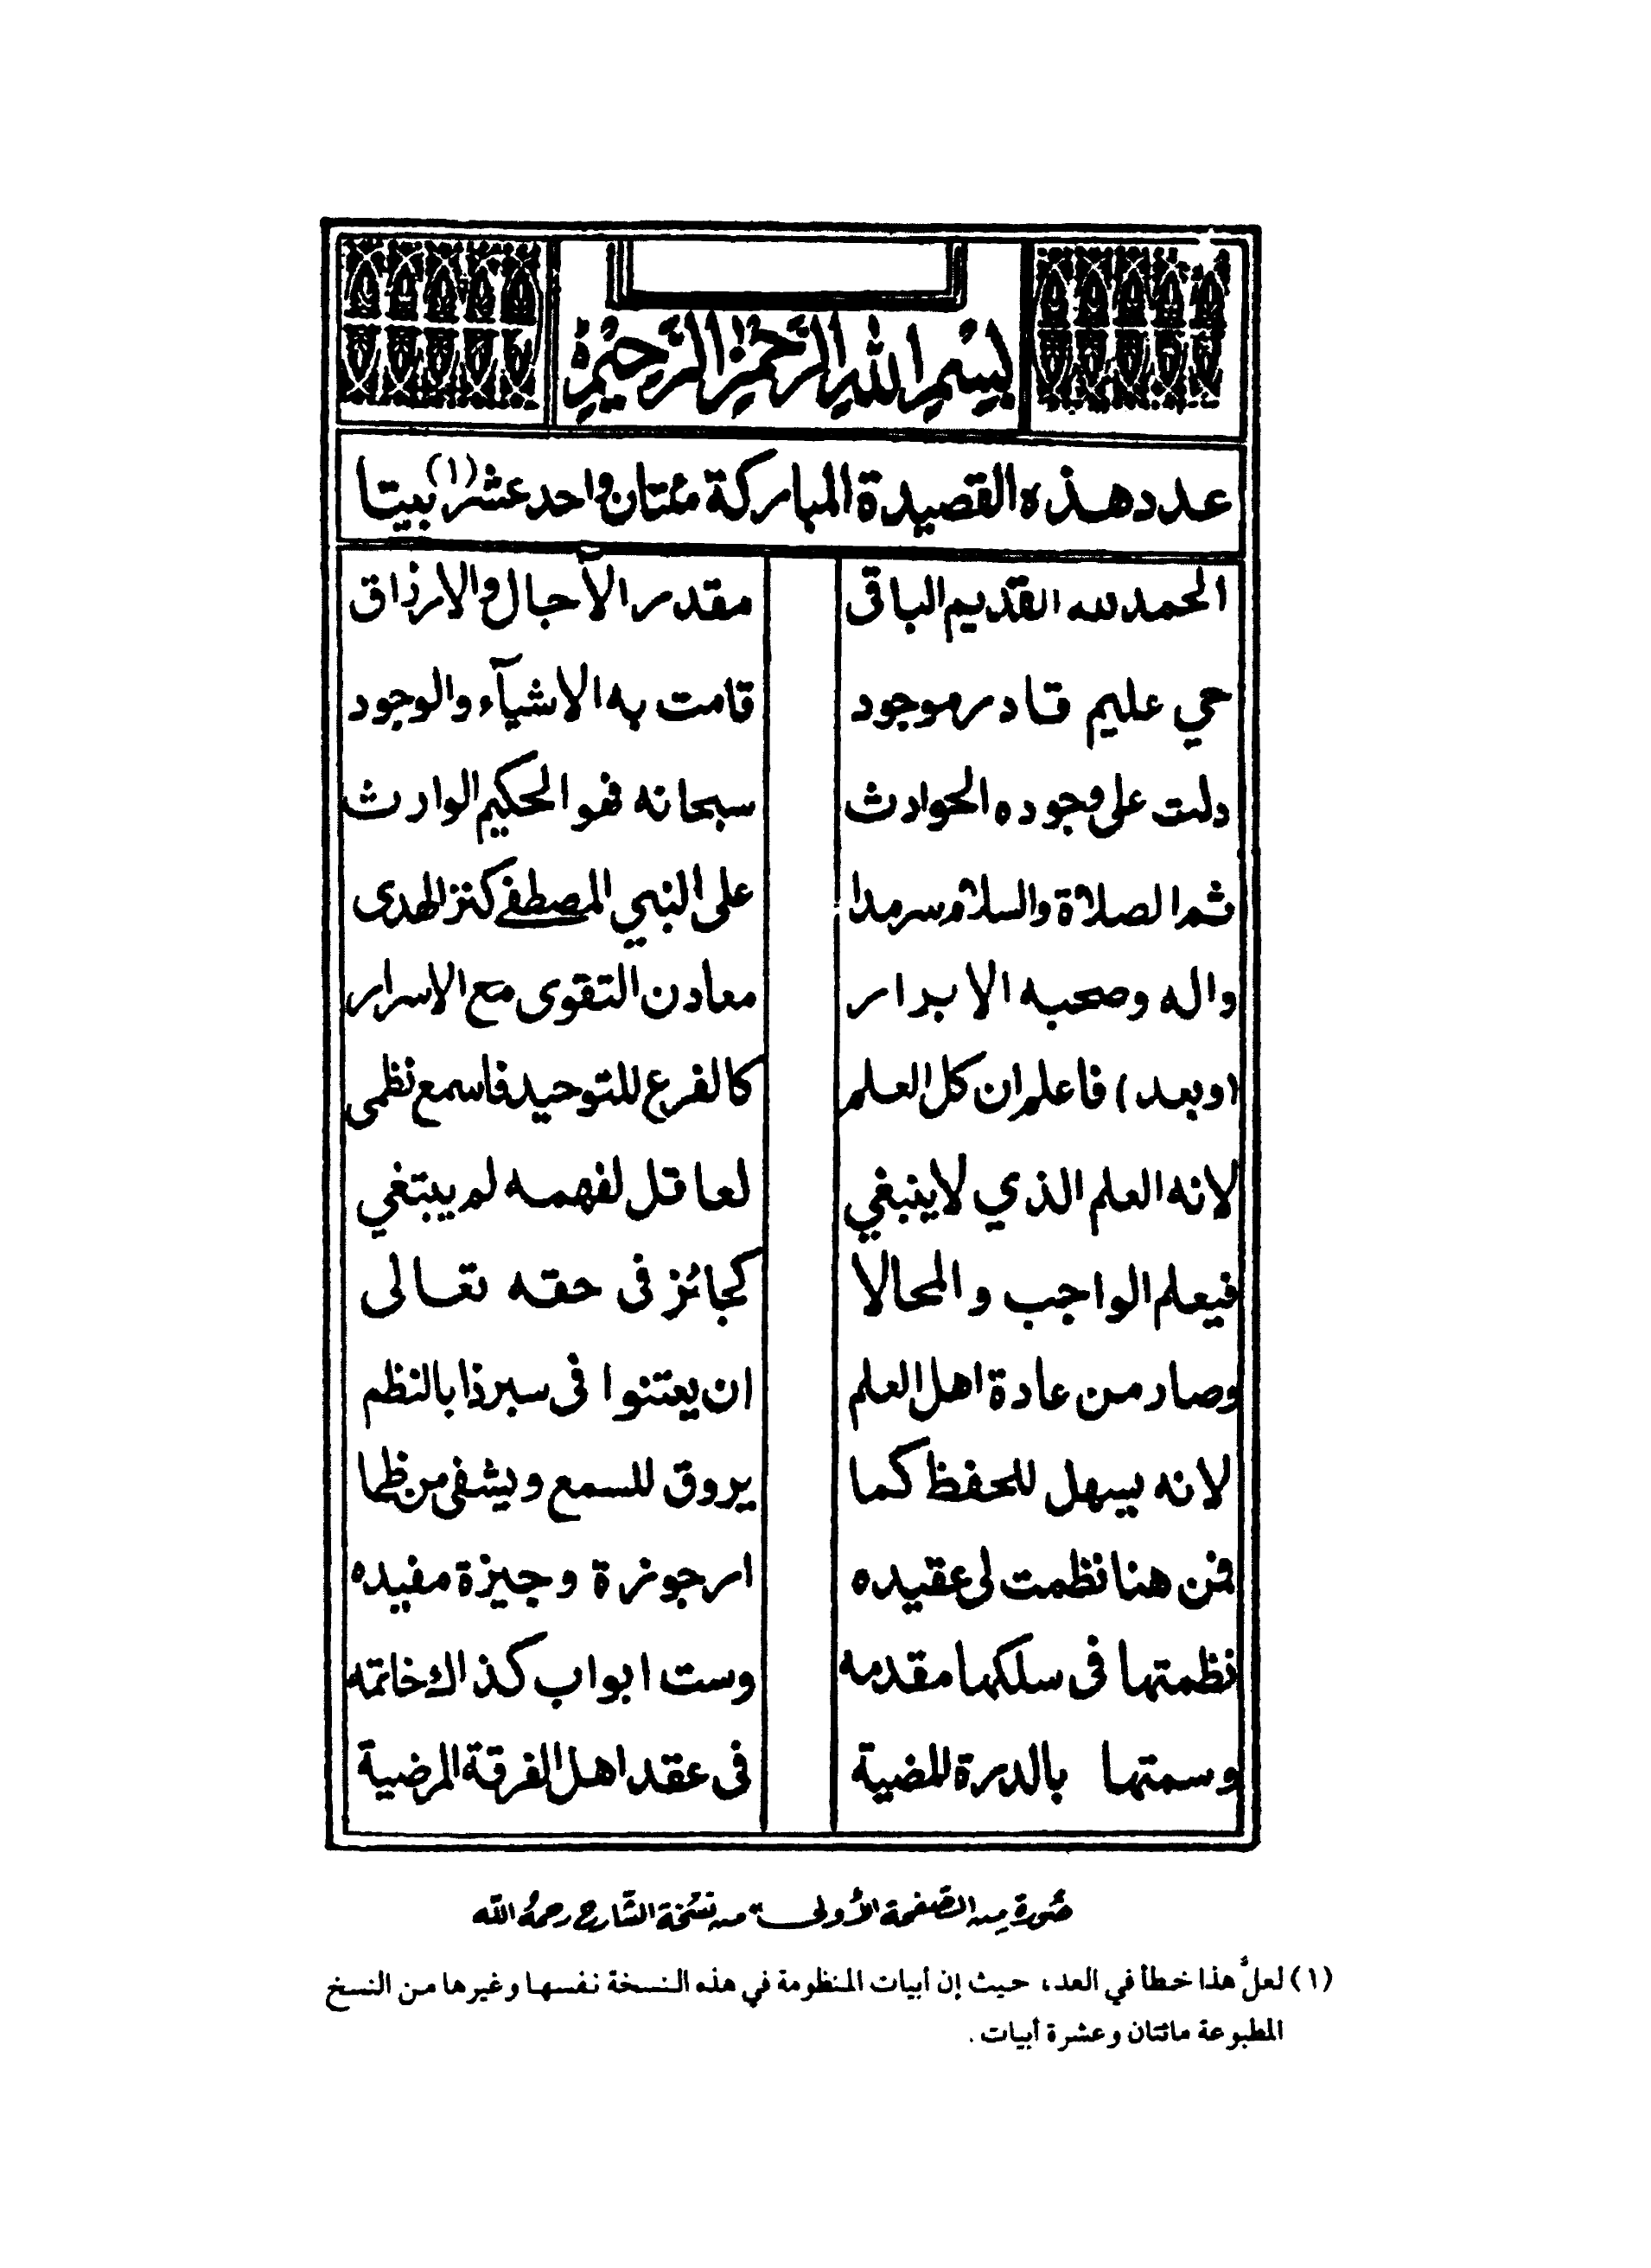 بسم الله الرحمن الرحيم
عدد هذه القصيدة المباركة مئتان واحد عشر (١) بيتا
الحمد لله القديم الباقى مقدر الآجال والارزاق
حي عليم قادر موجود قامت به الاشيآء والوجود
دلت على وجوده الحوادث سبحانه فهو الحكيم الوارث
ثم الصلاة والسلام سرمدا على النبي المصطفى كنز الهدى
واله وصحبه الابرار معادن التقوى مع الاسرار
(وبعد) فاعلم ان كل العلم كالفرع للتوحيد فاسمع نظمى
لانه العلم الذي لا ينبغي لعاقل لفهمه لم يبتغي
فيعلم الواجب والمحالا كجائز فى حقه تعالى
وصار من عادة اهل العلم ان يعتنوا فى سبر ذا بالنظم
لانه يسهل للحفظ كما يروق للسمع ويشفى من ظما
فمن هنا نظمت لى عقيده ارجوزة وجيزة مفيده
نظمتها فى سلكها مقدمه وست ابواب كذاك خاتمه
وسمتها بالدرة المضية فى عقد اهل الفرقة المرضية
صورة من الصفحة الأولى من نسخة الشارح رحمه الله
(١) لعلّ هذا خطأ في العد، حيث إن أبيات المنظومة في هذه النسخة نفسها وغيرها من النسخ
المطبوعة مائتان وعشرة أبيات .